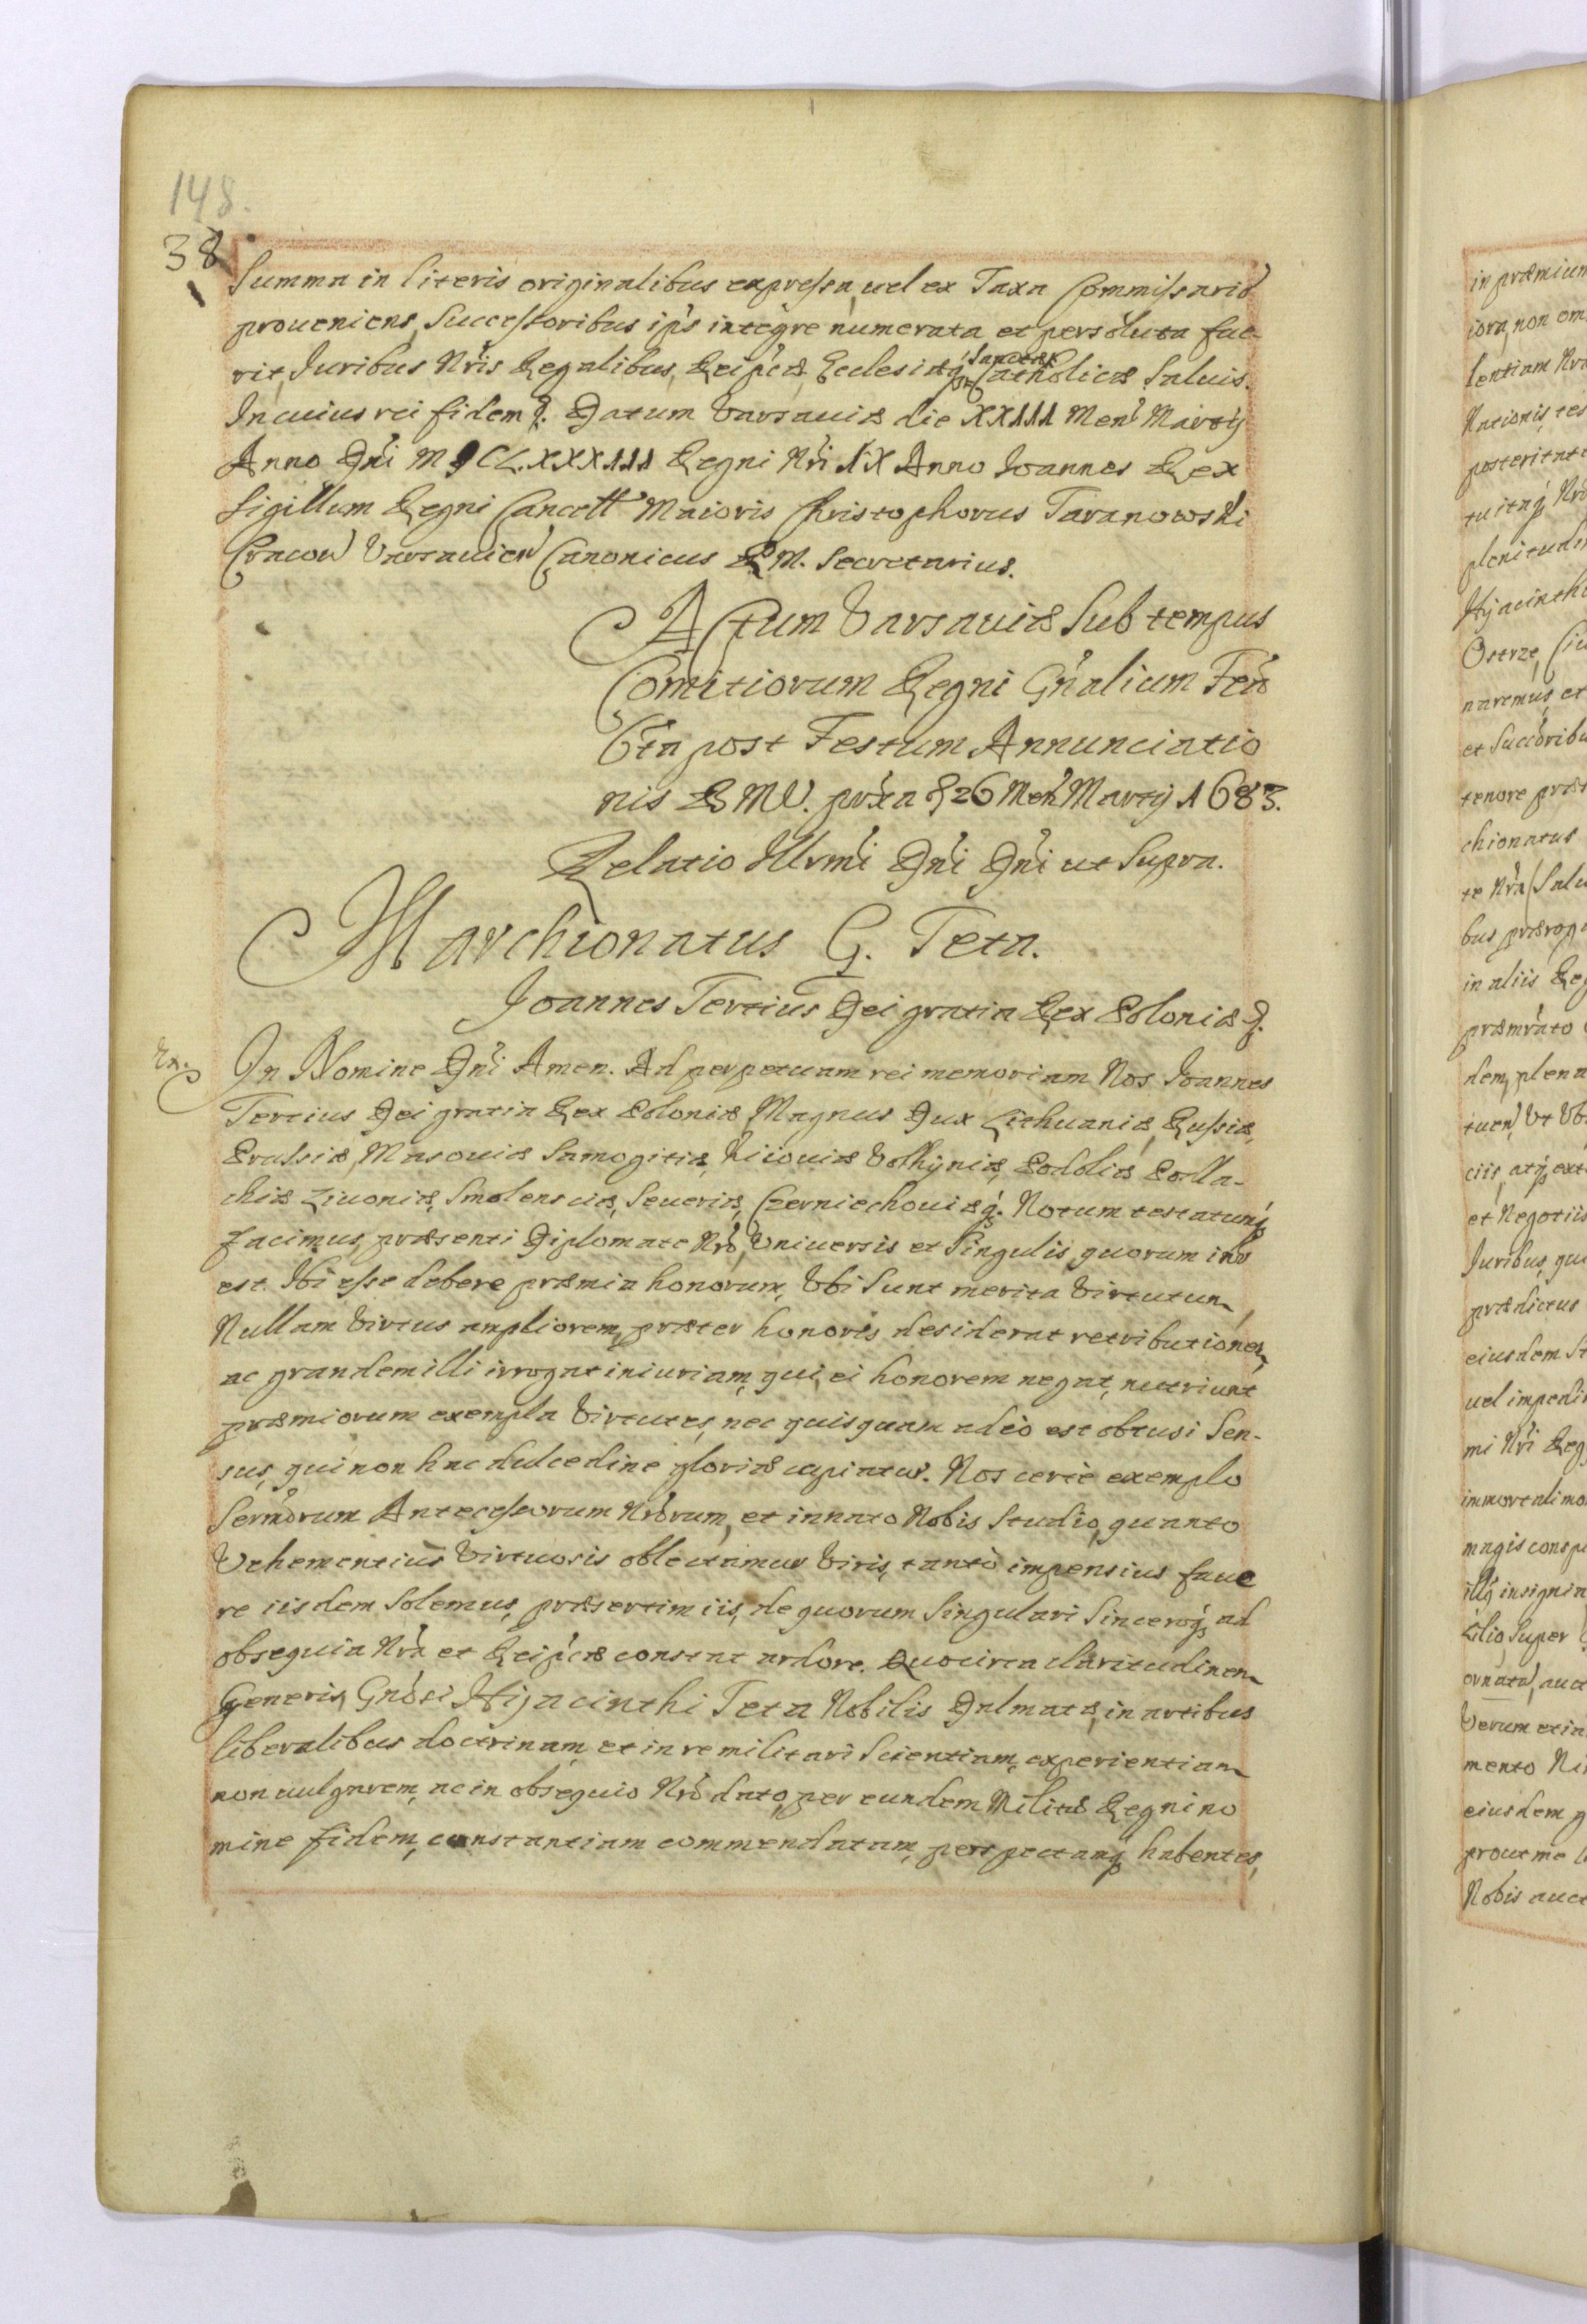 148.
38
Summa in literis originalibus expressa, uel ex Taxa Commissariō
proueniens, Successoribus ip̃s integre numerata et persoluta fue-
rit, Juribus Nr̃is Regalibus, Reip̃cæ, Ecclesiæq́; Sanctæ Catholicæ Saluis.
In cuius rei fidem &. Datum Varsauiæ die XXIII Men̄ Martij
Anno Dn̄i MDCLXXXIII Regni Nr̃i IX Anno Joannes Rex
Sigillum Regni Cancell̃ Maioris Christophorus Taranowski
Cracoũ Varsauień Canonicus R. M. Secretarius.
Actum Varsauiæ Sub tempus
Comitiorum Regni Gn̄alium Feŕ
6ta post Festum Annunciatio
nis B M V. prox̃a & 26 Men̄ Martij 1683.
Relatio Illrm̃i Dn̄i Dn̄i ut Supra.
Marchionatus G. Teta.
Joannes Tertius Dei gratia Rex Poloniæ &.
Ex. In Nomine Dn̄i Amen. Ad perpetuam rei memoriam Nos Joannes
Tertius Dei gratia Rex Poloniæ, Magnus Dux Lithuaniæ, Russiæ,
Prussiæ, Masouiæ Samogitiæ, Kiiouiæ Volhyniæ, Podoliæ Podla-
chiæ Liuoniæ, Smolensciæ, Seueriæ, Czerniechouiæq́;. Notum testatumq́;
facimus, præsenti Diplomate Nr̃o, Vniuersis et Singulis, quorum int̃
est. Ibi esse debere præmia honorum, Vbi Sunt merita Virtutum
Nullam Virtus ampliorem, præter honoris desiderat retributionem,
ac grandem illi irrogat iniuriam, qui, ei honorem negat, nutriunt
præmiorum exempla Virtutes, nec quisquam adeo est obtusi Sen-
sus, qui non hac dulcedine gloriæ capiatur. Nos certe exemplo
Serm̃orum Antecessorum Nr̃orum, et innato Nobis Studio, quanto
Vehementius Virtuosis oblectamur Viris, tanto impensius faue
re iisdem Solemus, præsertim iis, de quorum Singulari Sinceroq́; ad
obsequia Nr̃a et Reip̃cæ constat ardore. Quocirca claritudinem
Generis, Gn̄osi Hijacinthi Teta Nobilis Dalmatæ, in artibus
liberalibus doctrinam, et in re militari Scientiam, experientiam
non uulgarem, ac in obsequio Nr̃o dato, per eundem Militiæ Regni no
mine fidem, constantiam commendatam, perspectamq́; habentes,
in præmium
iora, non om
lentiam Nr̃a
Nationis, tes
posteritate
tuitaq́; Nr̃a
plenitudi
Hijacinthi
Ostrze, Ciu
naremus, et
et Succōribu
tenore præs
chionatus
te Nr̃a (Salu
bus præroga
in aliis Reg
præmr̃ato
dem, plena
tuen̄, Vt Vbi
ciis, atq́; ext
et Negotiis
Juribus, qui
prædictus
eiusdem St
uel impedi
mi Nr̃i Reg
immortali mo
magis conspi
illq́; insignia
Lilio Super
ornata, auct
Verum et in
mento Ni
eiusdem p
prout me
Nobis auct